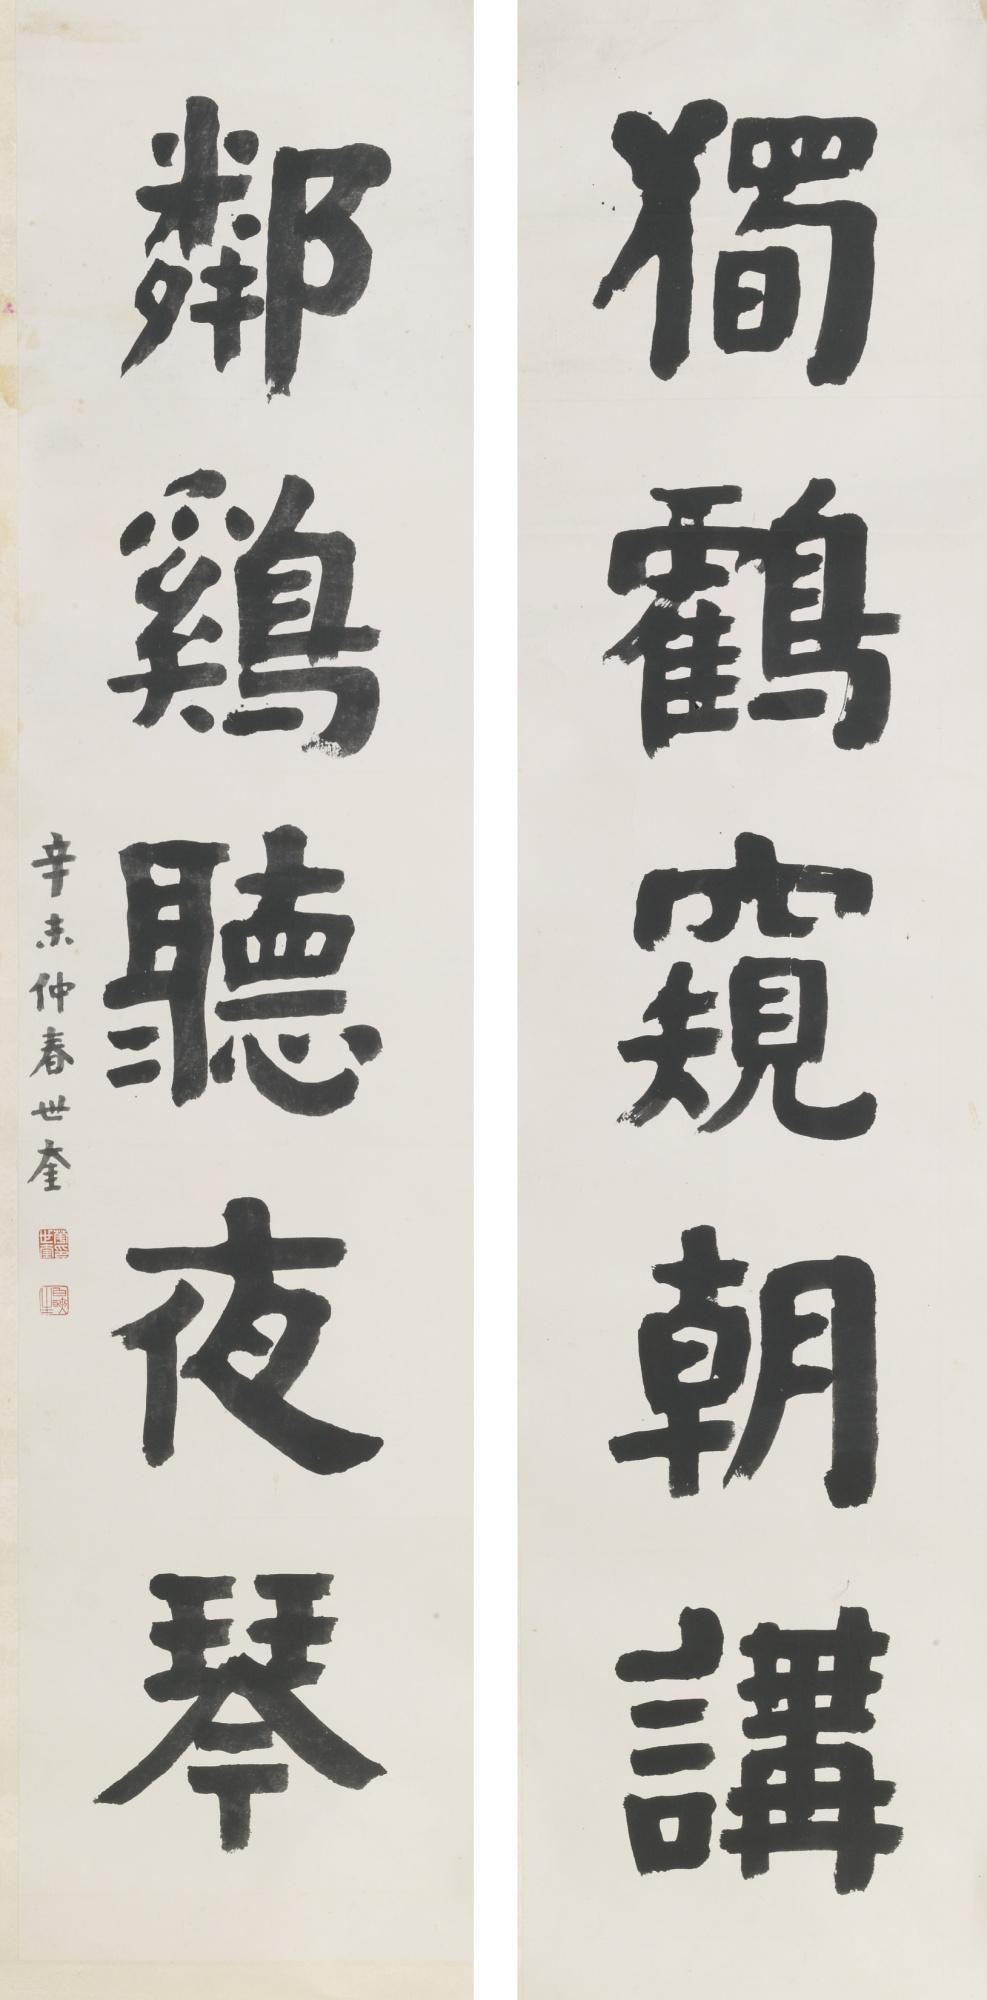 獨鸖窺朝講
鄰鷄聽夜琴
辛未仲春世奎